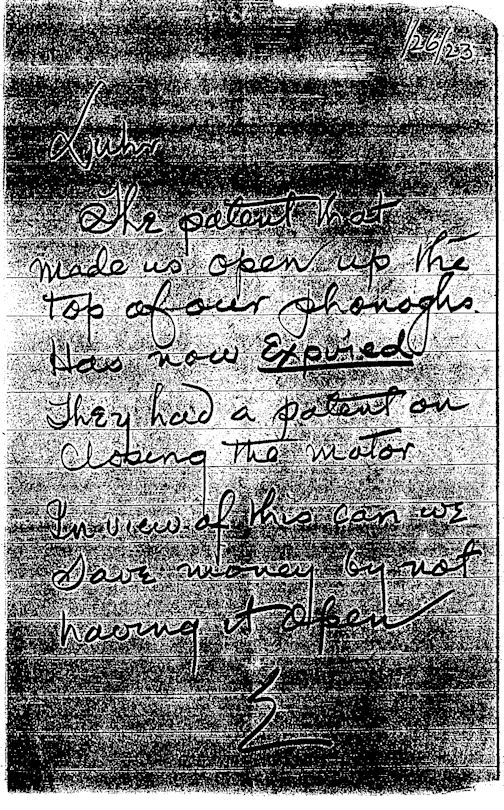 1/26/23
Luhr
The patent that
made us open up the
top of our phonoghs.
Has now Expired
They had a patent on
Closeing the motor
In view of this can we
Save money by not
having it open
E